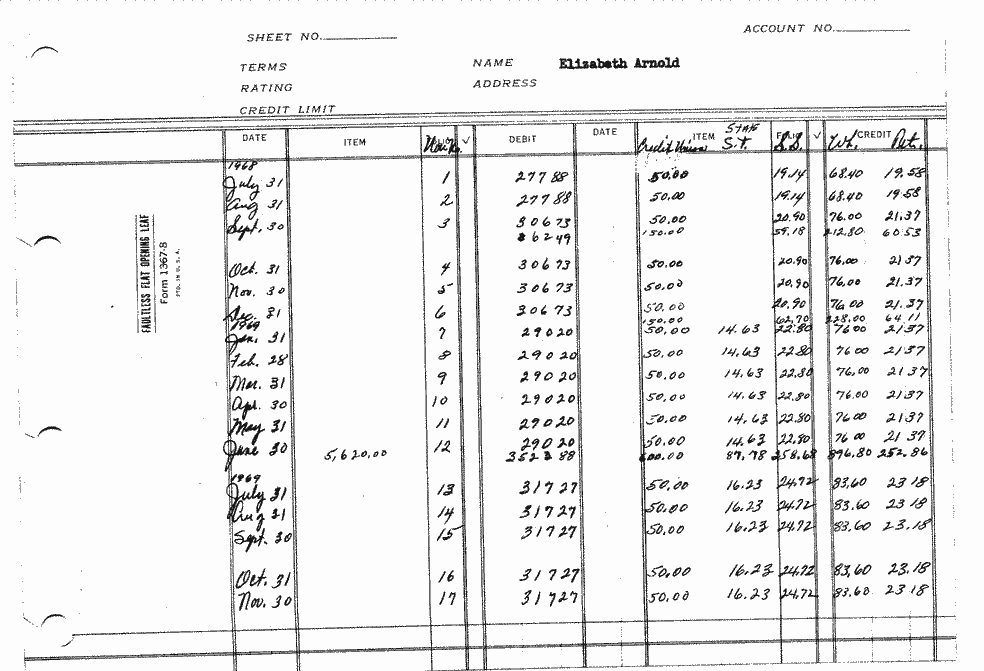 SHEET NO.
ACCOUNT NO.
TERMS
NAME Elizabeth Arnold
RATING
ADDRESS
CREDIT LIMIT
DATE ITEM √ DEBIT DATE ITEM √ CREDIT
Credit Union State S.T. S.S. Wh. Ret.
1968
July 31 1 277 88 50.00 19.14 68.40 19.58
Aug 31 2 277 88 50.00 19.14 68.40 19.58
Sept. 30 3 306 73 50.00 20.90 76.00 21.37
862 49 150.00 59.18 212.80 60.53
Oct. 31 4 306 73 50.00 20.90 76.00 21.37
Nov. 30 5 306 73 50.00 20.90 76.00 21.37
Dec. 31 6 306 73 50.00 20.90 76.00 21.37
150.00 62.70 228.00 64.11
1969
Jan. 31 7 290 20 50.00 14.63 22.80 76.00 21.37
Feb. 28 8 290 20 50.00 14.63 22.80 76.00 21.37
Mar. 31 9 290 20 50.00 14.63 22.80 76.00 21.37
Apr. 30 10 290 20 50.00 14.63 22.80 76.00 21.37
May 31 11 290 20 50.00 14.63 22.80 76.00 21.37
June 30 12 290 20 50.00 14.63 22.80 76.00 21.37
5,620.00 3523 88 600.00 87.78 258.68 896.80 252.86
1969
July 31 13 317 27 50.00 16.23 24.72 83.60 23.18
Aug 31 14 317 27 50.00 16.23 24.72 83.60 23.18
Sept. 30 15 317 27 50.00 16.23 24.72 83.60 23.18
Oct. 31 16 317 27 50.00 16.23 24.72 83.60 23.18
Nov. 30 17 317 27 50.00 16.23 24.72 83.60 23.18
FAULTLESS FLAT OPENING LEAF
Form 1367-8
PTD. IN U. S. A.